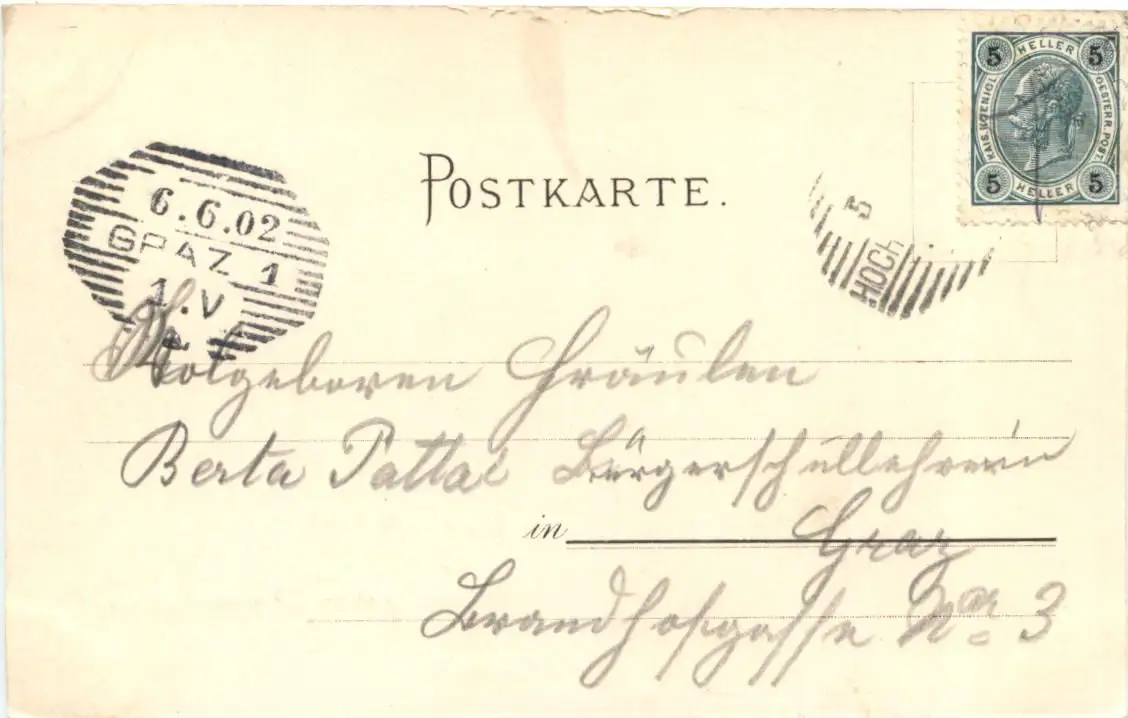 5 HELLER 5
KAIS. KOENIGL. OESTERR. POST.
5 HELLER 5
POSTKARTE.
6.6.02
GRAZ 1
1.V
5
HOCH
Wolgeboren Fräulen
Berta Pattai Bürgerschullehrerin
in Graz
Brandhofgasse Nr. 3